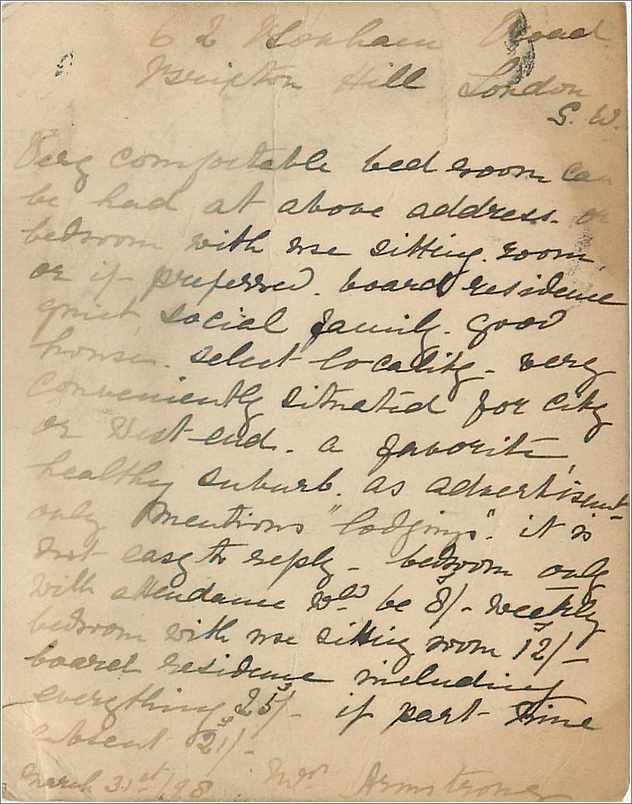 62 Bonham Road
Brixton Hill London
S. W.
Very comfortable bed room can
be had at above address. or
bedroom with use sitting. room,
or if preferred. board residence
quiet social family. good
house. select locality - very
conveniently situated for city
or West-end. a favorite
healthy suburb. as advertisement
only mentions "lodgings". it is
not easy to reply - bedroom only
with attendance wld be 8s/- weekly
bedroom with use sitting room 12s/-
board residence including
everything 25s/- if part time
absent 21s/-
March 31st/98 Mrs Armstrong